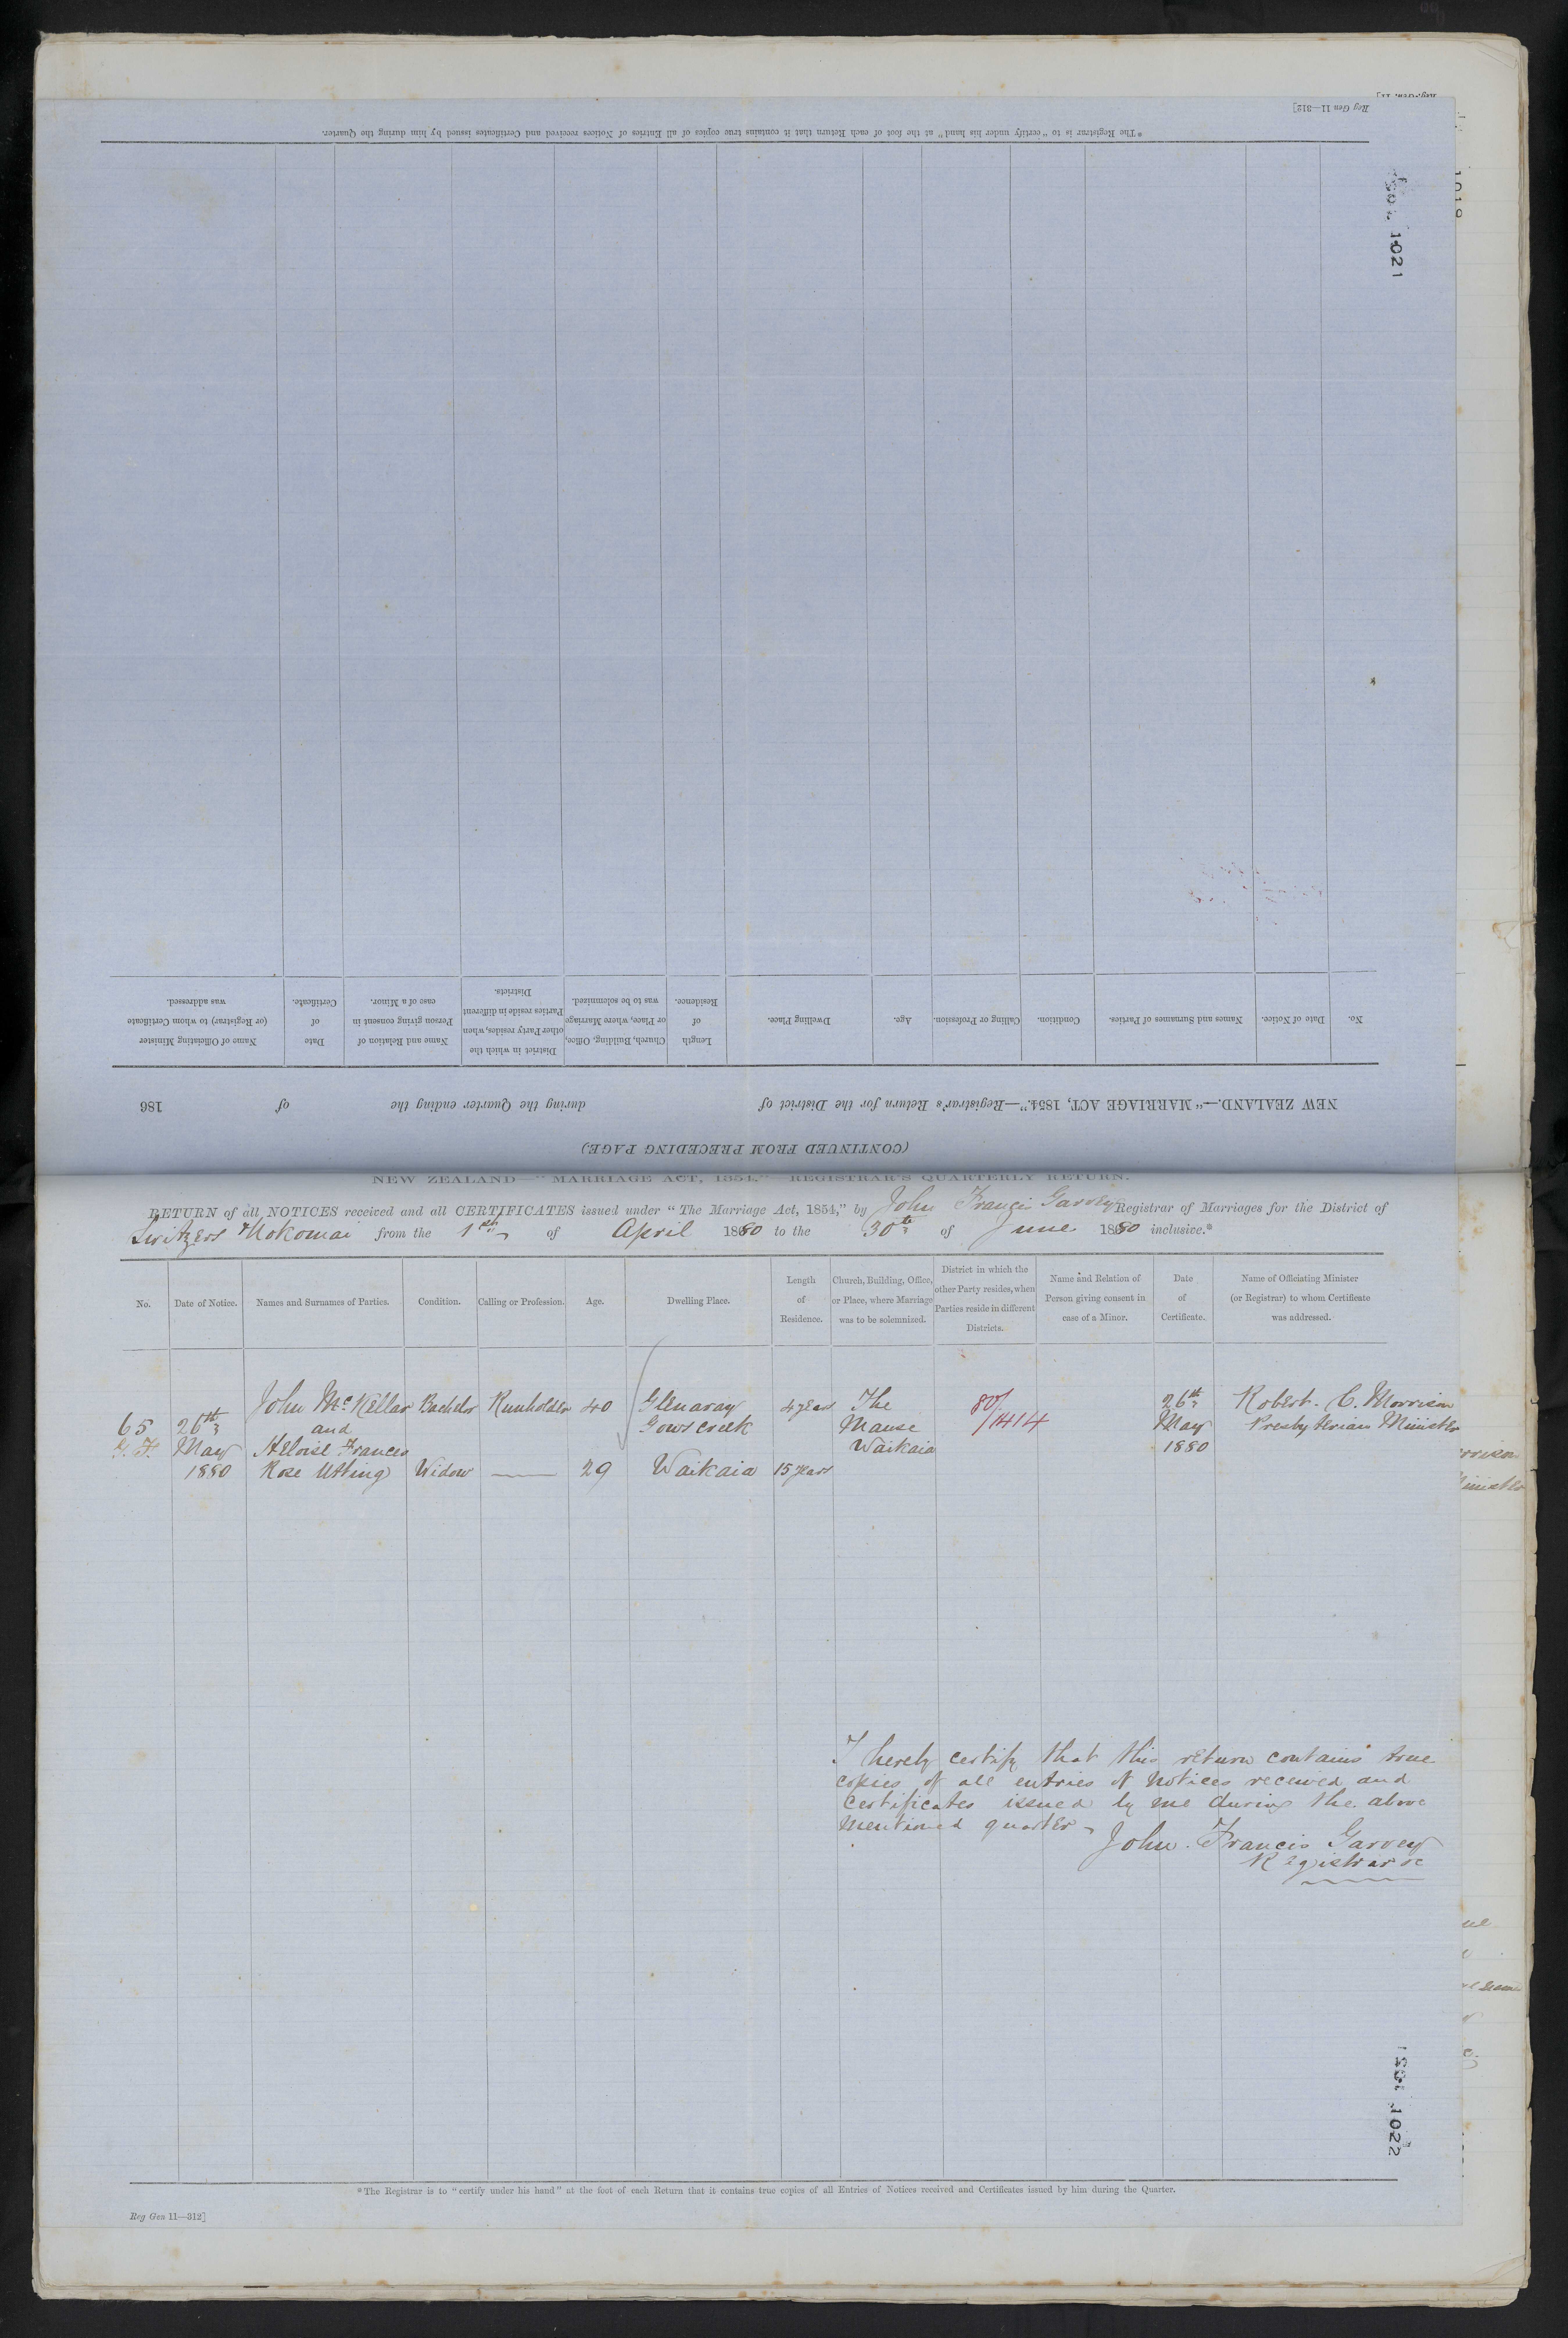 Reg Gen 11—312]
*The Registrar is to "certify under his hand" at the foot of each Return that it contains true copies of all Entries of Notices received and Certificates issued by him during the Quarter.
1021
(CONTINUED FROM PRECEDING PAGE)
NEW ZEALAND.—"MARRIAGE ACT, 1854."—Registrar's Return for the District of during the Quarter ending the of 186
No. Date of Notice. Names and Surnames of Parties. Condition. Calling or Profession. Age. Dwelling Place. Length of Residence. Church, Building, Office, or Place, where Marriage was to be solemnized. District in which the other Party resides, when Parties reside in different Districts. Name and Relation of Person giving consent in case of a Minor. Date of Certificate. Name of Officiating Minister (or Registrar) to whom Certificate was addressed.
NEW ZEALAND—"MARRIAGE ACT, 1854,"—REGISTRAR'S QUARTERLY RETURN.
RETURN of all NOTICES received and all CERTIFICATES issued under "The Marriage Act, 1854," by John Francis Garvey Registrar of Marriages for the District of
Switzers & Nokomai from the 1st of April 1880 to the 30th of June 1880 inclusive.*
No. Date of Notice. Names and Surnames of Parties. Condition. Calling or Profession. Age. Dwelling Place. Length of Residence. Church, Building, Office, or Place, where Marriage was to be solemnized. District in which the other Party resides, when Parties reside in different Districts. Name and Relation of Person giving consent in case of a Minor. Date of Certificate. Name of Officiating Minister (or Registrar) to whom Certificate was addressed.
John McKellar Bachelor Runholder 40 Glenaray 4 years The 80/1414 26th Robert. C. Morrison
65 26th and Gows Creek Manse May Presbyterian Minister
May Heloise Frances Waikaia 1880
1880 Rose Utting Widow — 29 Waikaia 15 years
I hereby certify that this return contains true
copies of all entries of notices received and
Certificates issued by me during the above
mentioned quarter
John Francis Garvey
Registrar
1022
*The Registrar is to "certify under his hand" at the foot of each Return that it contains true copies of all Entries of Notices received and Certificates issued by him during the Quarter.
Reg Gen 11—312]